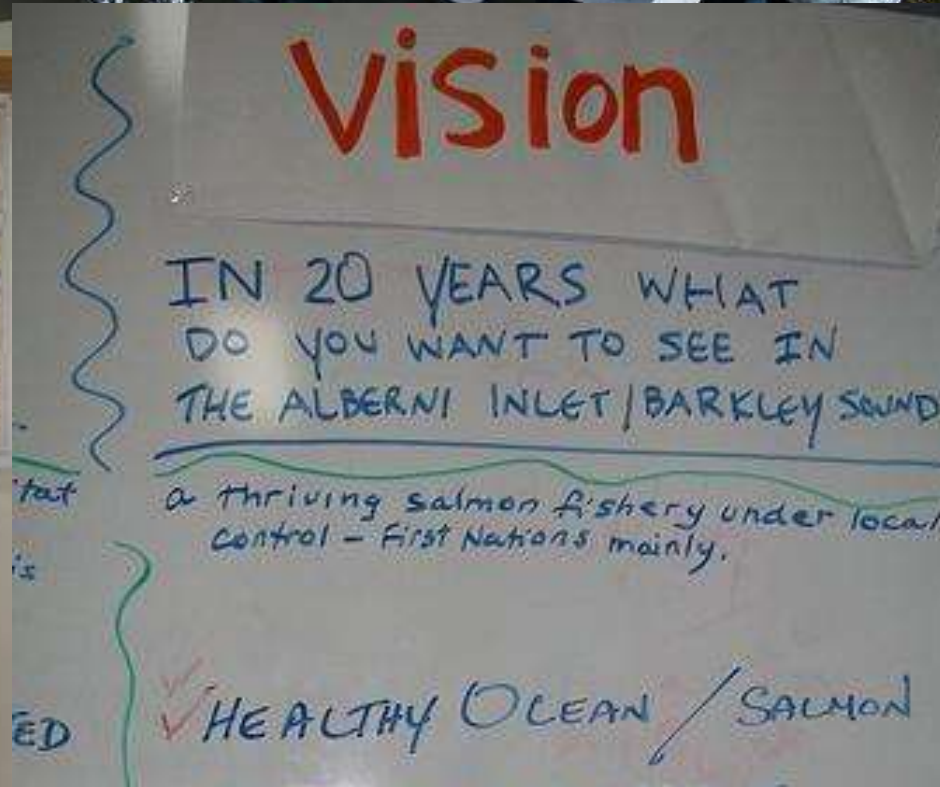 Vision
IN 20 YEARS WHAT
DO YOU WANT TO SEE IN
THE ALBERNI INLET/BARKLEY SOUND
a thriving salmon fishery under local
control – First Nations mainly.
HEALTHY OCEAN / SALMON
tat
is
ED